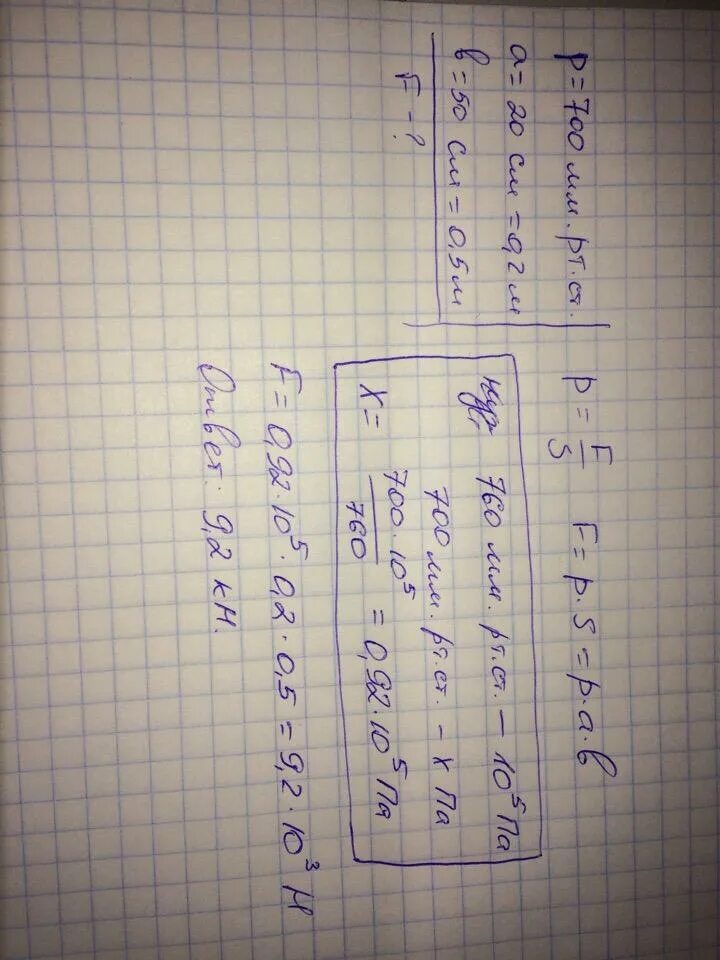 p = 700 мм. рт. ст.
a = 20 см = 0,2 м
b = 50 см = 0,5 м
F - ?
p = F/S F = p · S = p · a · b
760 мм. рт. ст. – 10⁵ Па
700 мм. рт. ст. – x Па
x = 700 · 10⁵ / 760 = 0,92 · 10⁵ Па
F = 0,92 · 10⁵ · 0,2 · 0,5 = 9,2 · 10³ Н
Ответ: 9,2 кН.